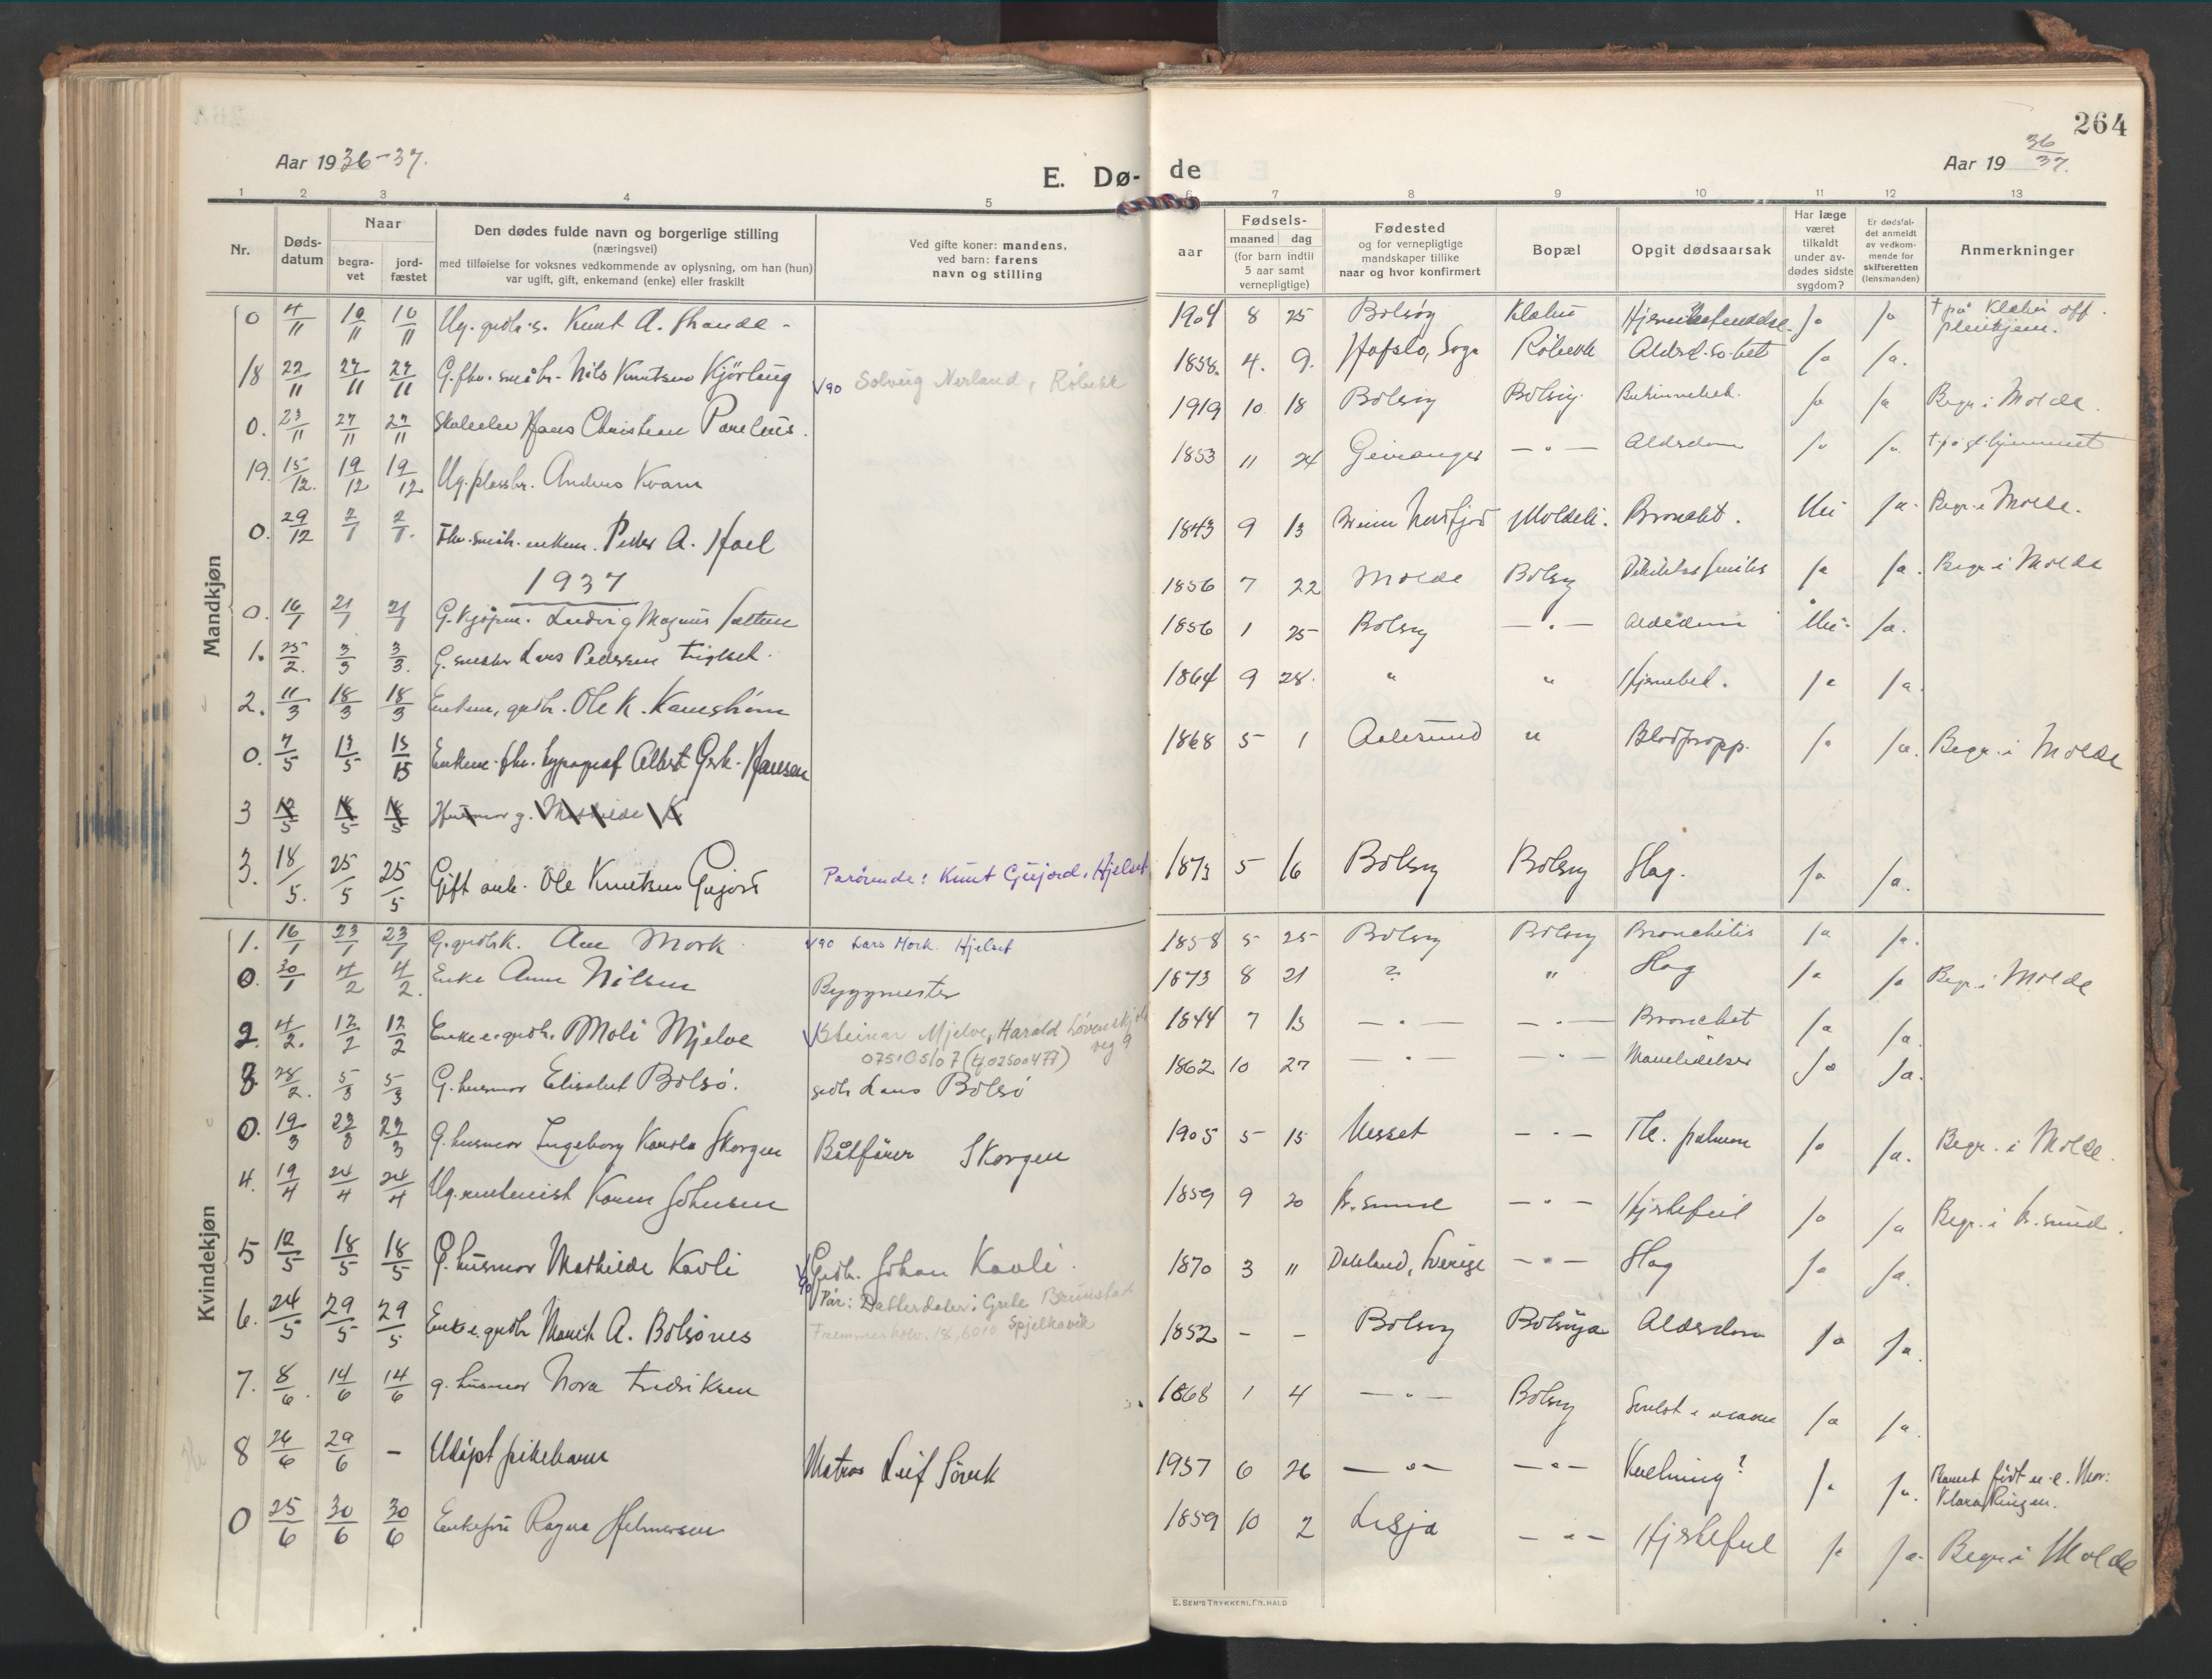 264
Aar 1936-37.
E. Dø- de
Aar 19 36/37.
1 2 3 4 5 6 7 8 9 10 11 12 13
Nr.
Døds-
datum
Naar
begra-
vet
jord-
fæstet
Den dødes fulde navn og borgerlige stilling
(næringsvei)
med tilføielse for voksnes vedkommende av oplysning, om han (hun)
var ugift, gift, enkemand (enke) eller fraskilt
Ved gifte koner: mandens,
ved barn: farens
navn og stilling
Fødsels-
aar
maaned dag
(for barn indtil
5 aar samt
vernepligtige)
Fødested
og for vernepligtige
mandskaper tillike
naar og hvor konfirmert
Bopæl
Opgit dødsaarsak
Har læge
været
tilkaldt
under av-
dødes sidste
sygdom?
Er dødsfal-
det anmeldt
av vedkom-
mende for
skifteretten
(lensmanden)
Anmerkninger
Mandkjøn
0 4/11 10/11 10/11 Ug. grdbr.s. Knut A. 1904 8 25 Bolsøy Klæbu Ja Ja † på Klæbu off. pleiehjem.
18 22/11 27/11 27/11 G. fhv. småbr. Nils Knutsen Kjørlaug V90 Solveig Nerland, Røbekk 1858. 4. 9. Hafslo, Sogn Røbekk Ja Ja.
0. 23/11 27/11 27/11 Skoleelev Hans Christian Parelius. 1919 10 18 Bolsøy Bolsøy Ja Ja Begr. i Molde.
19. 15/12. 19/12 19/12 Ug. plassbr. Anders Kvam 1853 11 24 Geiranger — " — Alderdom Ja Ja. † på gl.hjemmet
0. 29/12 2/1 2/1. Fhv. småbr. enkem. Peder A. Hoel 1843 9 13 Moldeli. Bronchit. Nei Ja. Begr. i Molde.
1937
0. 16/1 21/1 21/1 G. kjøpm. Ludvig Magnus Sættem 1856 7 22 Molde Bolsøy Ja Ja. Begr. i Molde
1. 25/2. 3/3 3/3. G. småbr Lars Pedersen 1856 1 25 Bolsøy — " — Alderdom Nei Ja.
2. 11/3 18/3 18/3 Enkem, grdbr. Ole K. Kameshiem 1864 9 28. " " Hjernebl. Ja Ja.
0. 7/5 13/5 13/15 Enkem. fhv. typograf Albert Gerh. Hansen 1868 5 1 Aalesund " Blodpropp. Ja Ja. Begr. i Molde
3 12/5 18/5 18/5 Husmor g. Mathilde K
3. 18/5. 25/5 25/5 Gift arb. Ole Knutsen Gujord Parørende: Knut Gujord, Hjelset 1873 5 16 Bolsøy Bolsøy Slag. Ja Ja.
Kvindekjøn
1. 16/1 23/1 23/1 G. grdbrk. Ane Mork V90 Lars Mork Hjelset 1858 5 25 Bolsøy Bolsøy Bronchitis Ja Ja.
0. 30/1 4/2 4/2. Enke Anne Nilsen Byggmester 1873 8 21 ? " Slag Ja Ja Begr. i Molde
2. 4/2. 12/2 12/2 Enke e. grdbr. Moli Mjelve V Steinar Mjelve, Harald Løvenskjolds veg 9 1844 7 13 — " — — " — Bronchit Ja Ja.
0751 Oslo 7 (tf 02500477)
3 28/2. 5/3 5/3 G. husmor Elisabet Bolsø. grdbr Lars Bolsø 1862 10 27 — " — — " — Mavelidelser Ja Ja.
0. 19/3 23/3 23/3 G. husmor Ingeborg Karola Skorgen Båtfører Skorgen 1905 5 15 Nesset — " — Tb. pulmon Ja Ja. Begr. i Molde.
4. 19/4 24/4 24/4 Ug. rentenist Karen Johnsen 1859 9 20 Kr.sund — " — Hjertefeil Ja Ja Begr. i Kr.sund.
5 12/5 18/5 18/5 G. husmor Mathilde Kavli V90 Grdbr. Johan Kavli. 1870 3 11 Dalsland, Sverige — " — Slag Ja Ja.
Pår: Datterdater: Grete Brunstad
Fremmerholv. 18, 6010 Spjelkavik
6. 24/5 29/5 29/5 Enke e. grdbr Marit A. Bolsønes 1852 - - Bolsøy Bolsøya Alderdom Ja Ja.
7. 8/6. 14/6 14/6 g. husmor Nora Fredriksen 1868 1 4 — " — Bolsøy Ja Ja.
8 26/6 29/6 - Udøpt pikebarn Matros Leif Sørvik 1937 6 26 — " — — " — Kvelning? Ja Ja. Barnet født u.e. Mor:
Klara Ringen.
0 25/6 30/6 30/6 Enkefru Ragna Helmersen 1859 10 2 Lesja — " — Hjertefeil Ja Ja. Begr. i Molde
E. SEM'S TRYKKERI, FR.HALD